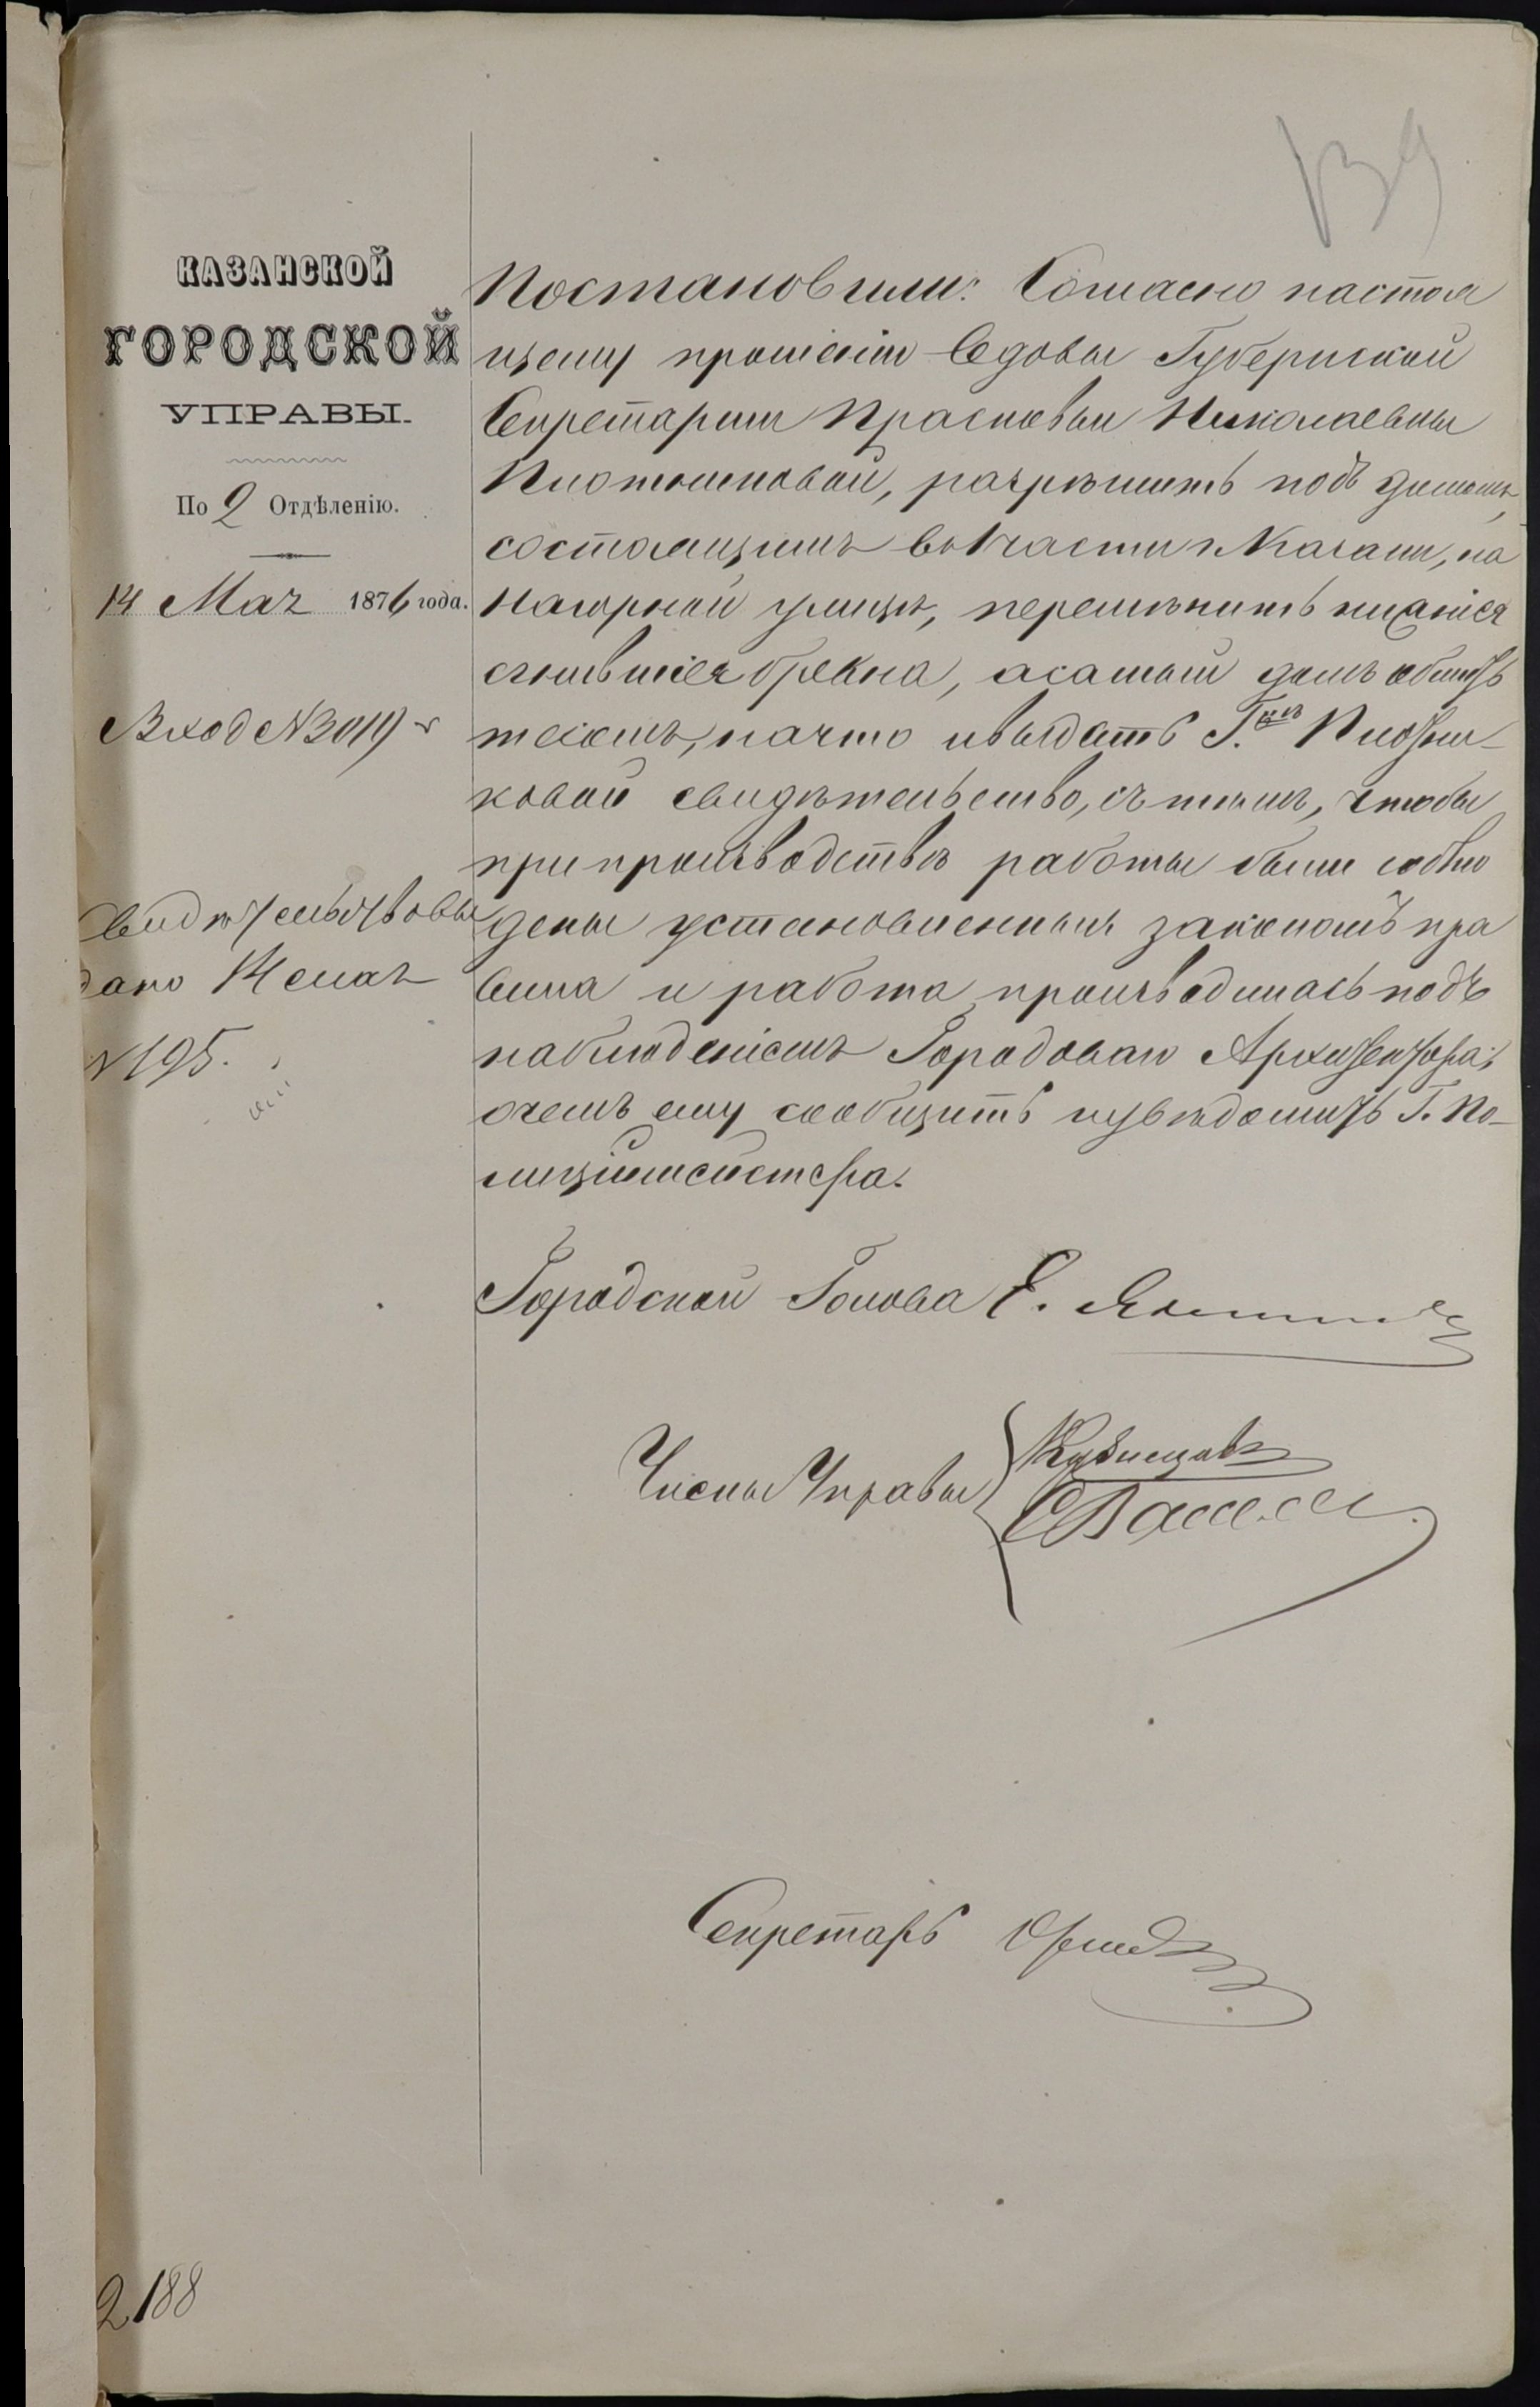 139
КАЗАНСКОЙ
ГОРОДСКОЙ
УПРАВЫ.
По 2 Отдѣленію.
14 Мая 1876 года.
Вход №3019
Свидѣтельство вы
дано 14 мая
№195.
Постановили: Согласно настоя
щему прошенію вдовы Губернской
Секретарши Прасковьи Николаевны
разрѣшить подъ домомъ,
состоящимъ въ 1 части г. Казани, на
Нагорной улицѣ, перемѣнить нижнія
сгнившія бревна, а самый домъ обшить
тесомъ, на что и выдать Г.
ковой свидѣтельство, съ тѣмъ, чтобы
при производствѣ работы были соблю
дены установленныя закономъ пра
вила и работа производилась подъ
наблюденіемъ Городоваго Архитектора;
о чемъ ему сообщить и увѣдомить Г. По-
лиціймейстера.
Городской Голова Е.
Члены Управы
Кузнецовъ
Секретарь
2188